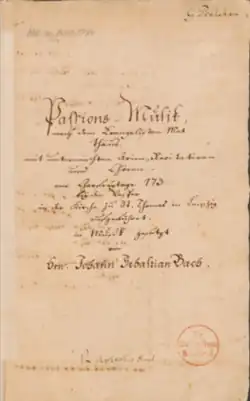 Passions-Musik,
nach dem Evangelisten Mat
thäus
mit untermischten Arien, Recitativen
und Chören
am Charfreytage 173
bey der Vesper
in der Kirche zu St. Thomas in Leipzig
aufgeführt.
in Musik gesetzt
von
Hrn. Johann Sebastian Bach.